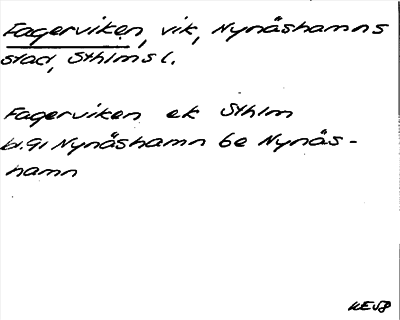 Fagerviken, vik, Nynäshamns
stad, Sthlms l.
Fagerviken ek Sthlm
bl.91 Nynäshamn be Nynäs-
hamn